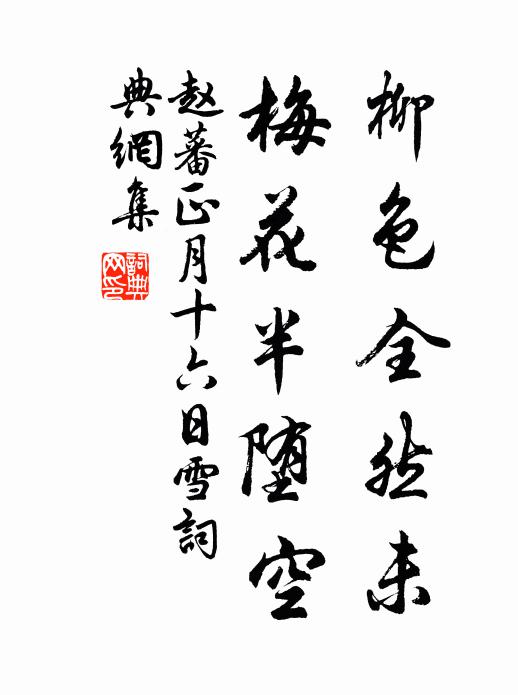 柳色全然未
梅花半堕空
赵蕃正月十六日雪詞
典網集
詞典
网印